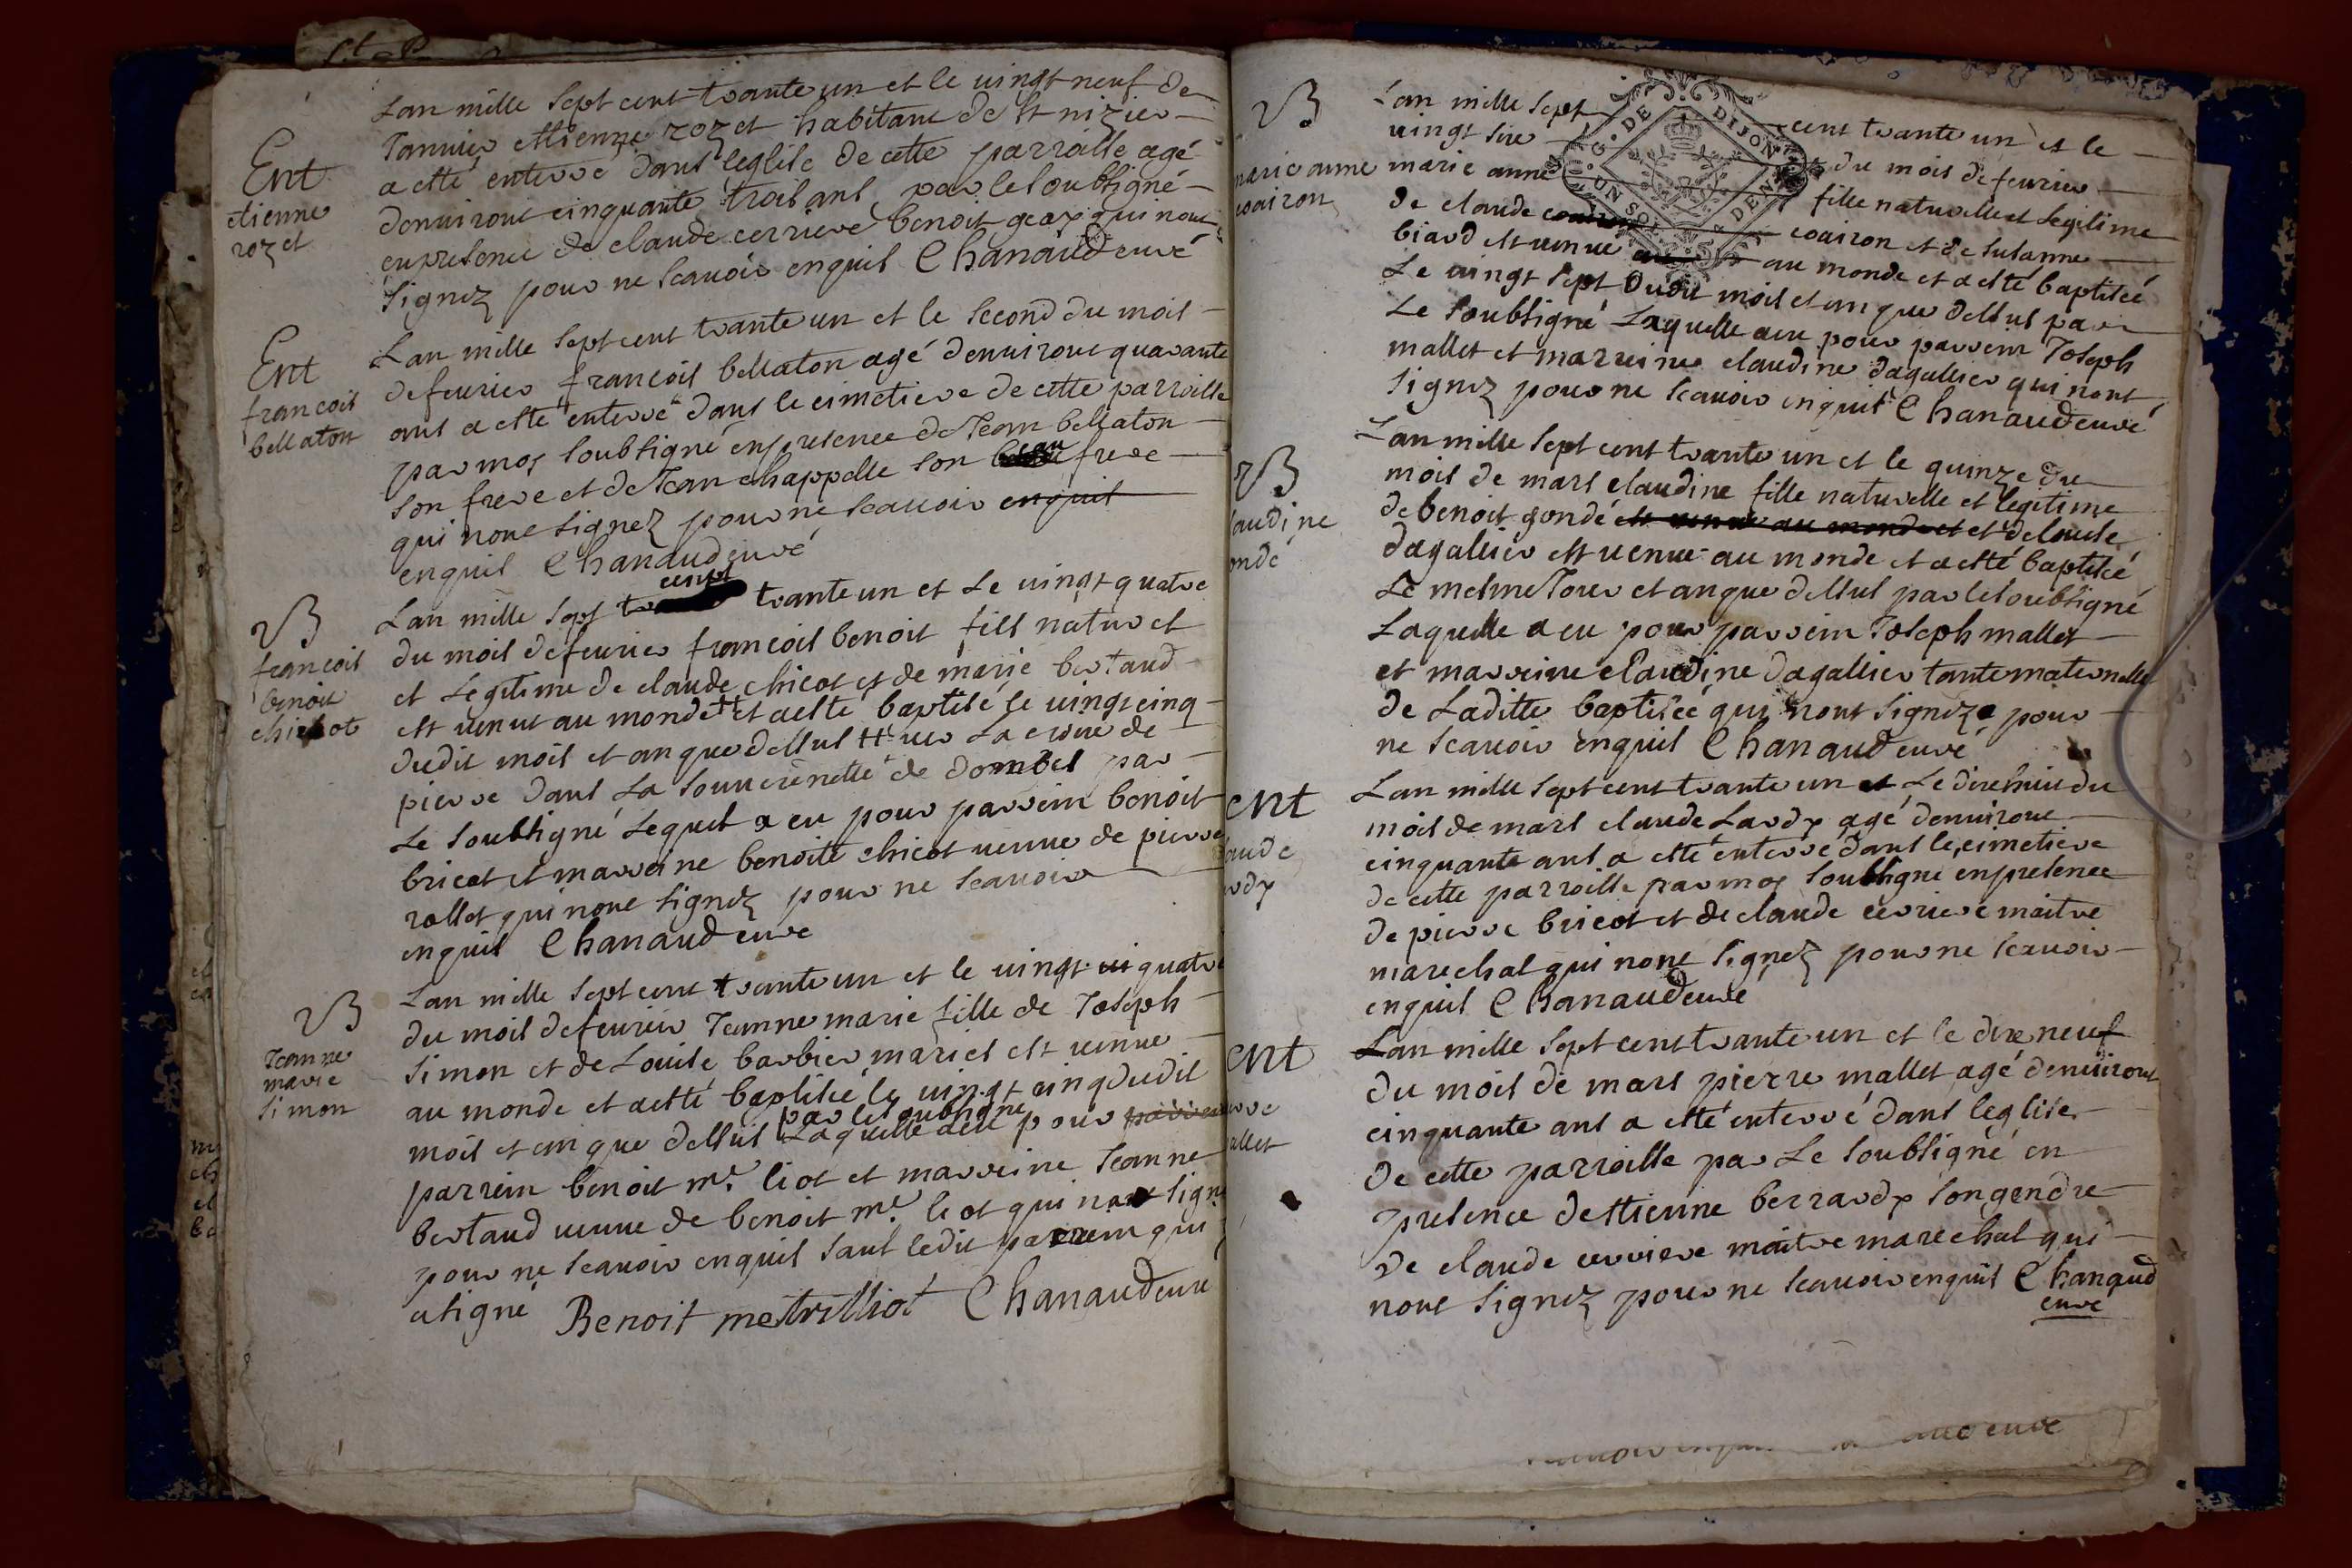 Ent
etienne
rozet
Lan mille sept cent trante un et le uingt neuf de
Januier ettienne rozet habitant de st nizier
a esté enterré dans leglise de cette parroisse agé
denuiront cinquante trois ans par le soubsigné
enpresence de claude cerriere benoit geay qui nont
signez pour ne scauoir enquis Chanaudeuve
Ent
francois
bellaton
Lan mille sept cent trante un et le second du mois
de feurier francois bellaton agé denuiront quarante
ans a esté enterré dans le cimetiere de cette parroisse
par moy soubsigné enpresence de Jean bellaton
son frere et de Jean chappelle son beau frere
qui nont signez pour ne scauoir enquis
enquis Chanaudeuvé
B
francois
benoit
chicot
Lan mille sept cent trante un et Le uingt quatre
du mois de feurier francois benoit fils naturel
et Legitime de claude chicot et de marie bertaud
est uenut au monde et aesté baptisé le uingt cinq
dudit mois et an que dessus ++ sur La croire de
pierre dans La souuereneté de dombes par
Le soubsigné Lequel a eu pour parrein benoit
bricot et marreine benoite chicot ueuue de pierre
rollet qui nont signez pour ne scauoir
enquis Chanaudeuve
B
Jeanne
marie
simon
Lan mille sept cent trante un et le uingt ui quatre
du mois de feurier Jeanne marie fille de Joseph
simon et de Louise barbier mariés est uenue
au monde et aesté baptisée le uingt cinq dudit
mois et an que dessus par le soubsigné Laquelle aeu pour parrein
parrein benoit me. liot et marreine Jeanne
bertaud ueuue de benoit me. liot qui nont signe
pour ne scauoir enquis sauf ledit parrein qui
a signé Benoit metrilliot Chanaudeuve
G. DE DIJON
UN SOL. DEN
B
marie anne
coairon
Lan mille sept cent trante un et le
uingt sixe du mois de feurier
marie anne fille naturelle et legitime
de claude coairon coairon et de susanne
biard est uenue au au monde et a esté baptisée
Le uingt sept dudit mois et an que dessus par
Le soubsigné Laquelle aeu pour parrein Joseph
mallet et marreine claudine dagallier qui nont
signez pour ne scauoir enquis Chanaudeuve
B
laudine
ondé
Lan mille sept cent trante un et le quinze du
mois de mars claudine fille naturelle et legitime
de benoit gondé est uenue au monde et et de louise
dagallier est uenue au monde et a esté baptisée
Le mesme Jour et an que dessus par le soubsigné
Laquelle a eu pour parrein Joseph mallet
et marreine claudine dagallier tante maternelle
de Laditte baptisée qui nont signez pour
ne scauoir enquis Chanaudeuvé
Ent
aude
ardy
Lan mille sept cent trante un et Le dixhuit du
mois de mars claude Lardy agé denuiront
cinquante ans a esté enterré dans le cimetiere
de cette parroisse par moy soubsigné enpresence
de pierre bricot et de claude cerriere maitre
marechal qui nont signez pour ne scauoir
enquis Chanaudeuvé
Ent
erre
allet
Lan mille sept cent trante un et le dixneuf
du mois de mars pierre mallet agé denuiront
cinquante ans a esté enterré dans leglise
de cette parroisse par Le soubsigné en
presence dettienne berrardy son gendre
de claude cerriere maitre marechal qui
nont signez pour ne scauoir enquis Chanaud
euve